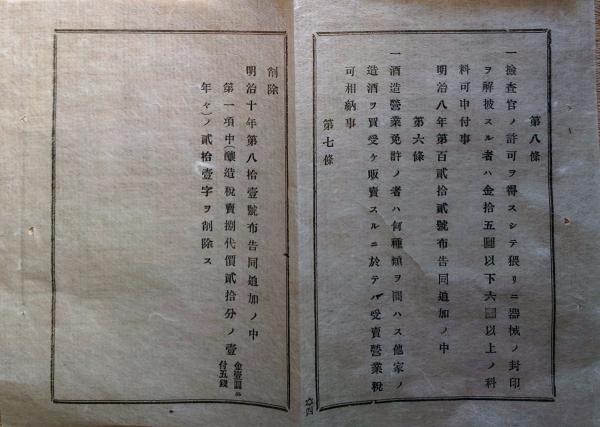 第八條
一撿査官ノ許可ヲ得スシテ猥リニ器械ノ封印
ヲ解披スル者ハ金拾五圓以下六圓以上ノ科
料可申付事
明治八年第百貳拾貳號布告同追加ノ中
第六條
一酒造營業免許ノ者ハ何種類ヲ問ハス他家ノ
造酒ヲ買受ケ販賣スルニ於テハ受賣營業税
可相納事
第七條
削除
明治十年第八拾壹號布告同追加ノ中
第一項中(釀造税賣捌代價貳拾分ノ壹金壹圓ニ付五錢
年々)ノ貳拾壹字ヲ削除ス